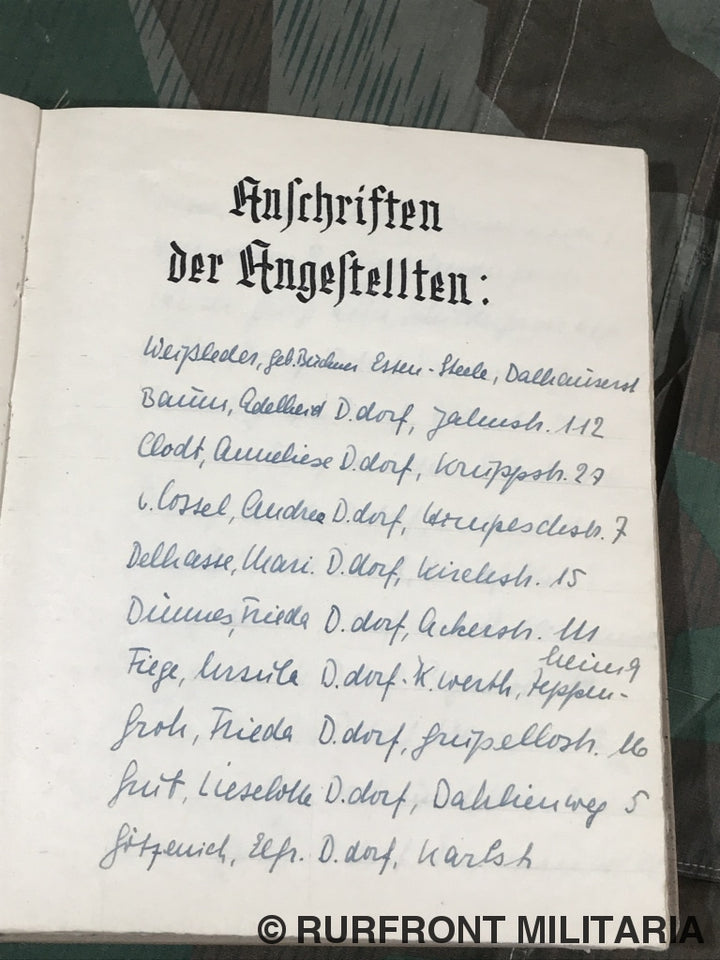 Anschriften
der Angestellten:
Weißleder, geb. Büchner Essen-Steele, Dalhauserst
Baum, Adelheid D.dorf, Jahnstr. 112
Clodt, Anneliese D.dorf, Kruppstr. 27
v. Cossel, Andrea D.dorf, Hompeschstr. 7
Delhasse, Mari. D.dorf, Kirchstr. 15
Frieda D.dorf, Ackerstr. 111
heim 9
Fiege, Ursula D.dorf-K.werth, Zeppen-
Groh, Frieda D.dorf, Grupellostr. 16
Grüt, Lieselotte D.dorf, Dahlienweg 5
Götzenich, Elfr. D.dorf, Karlst
© RURFRONT MILITARIA